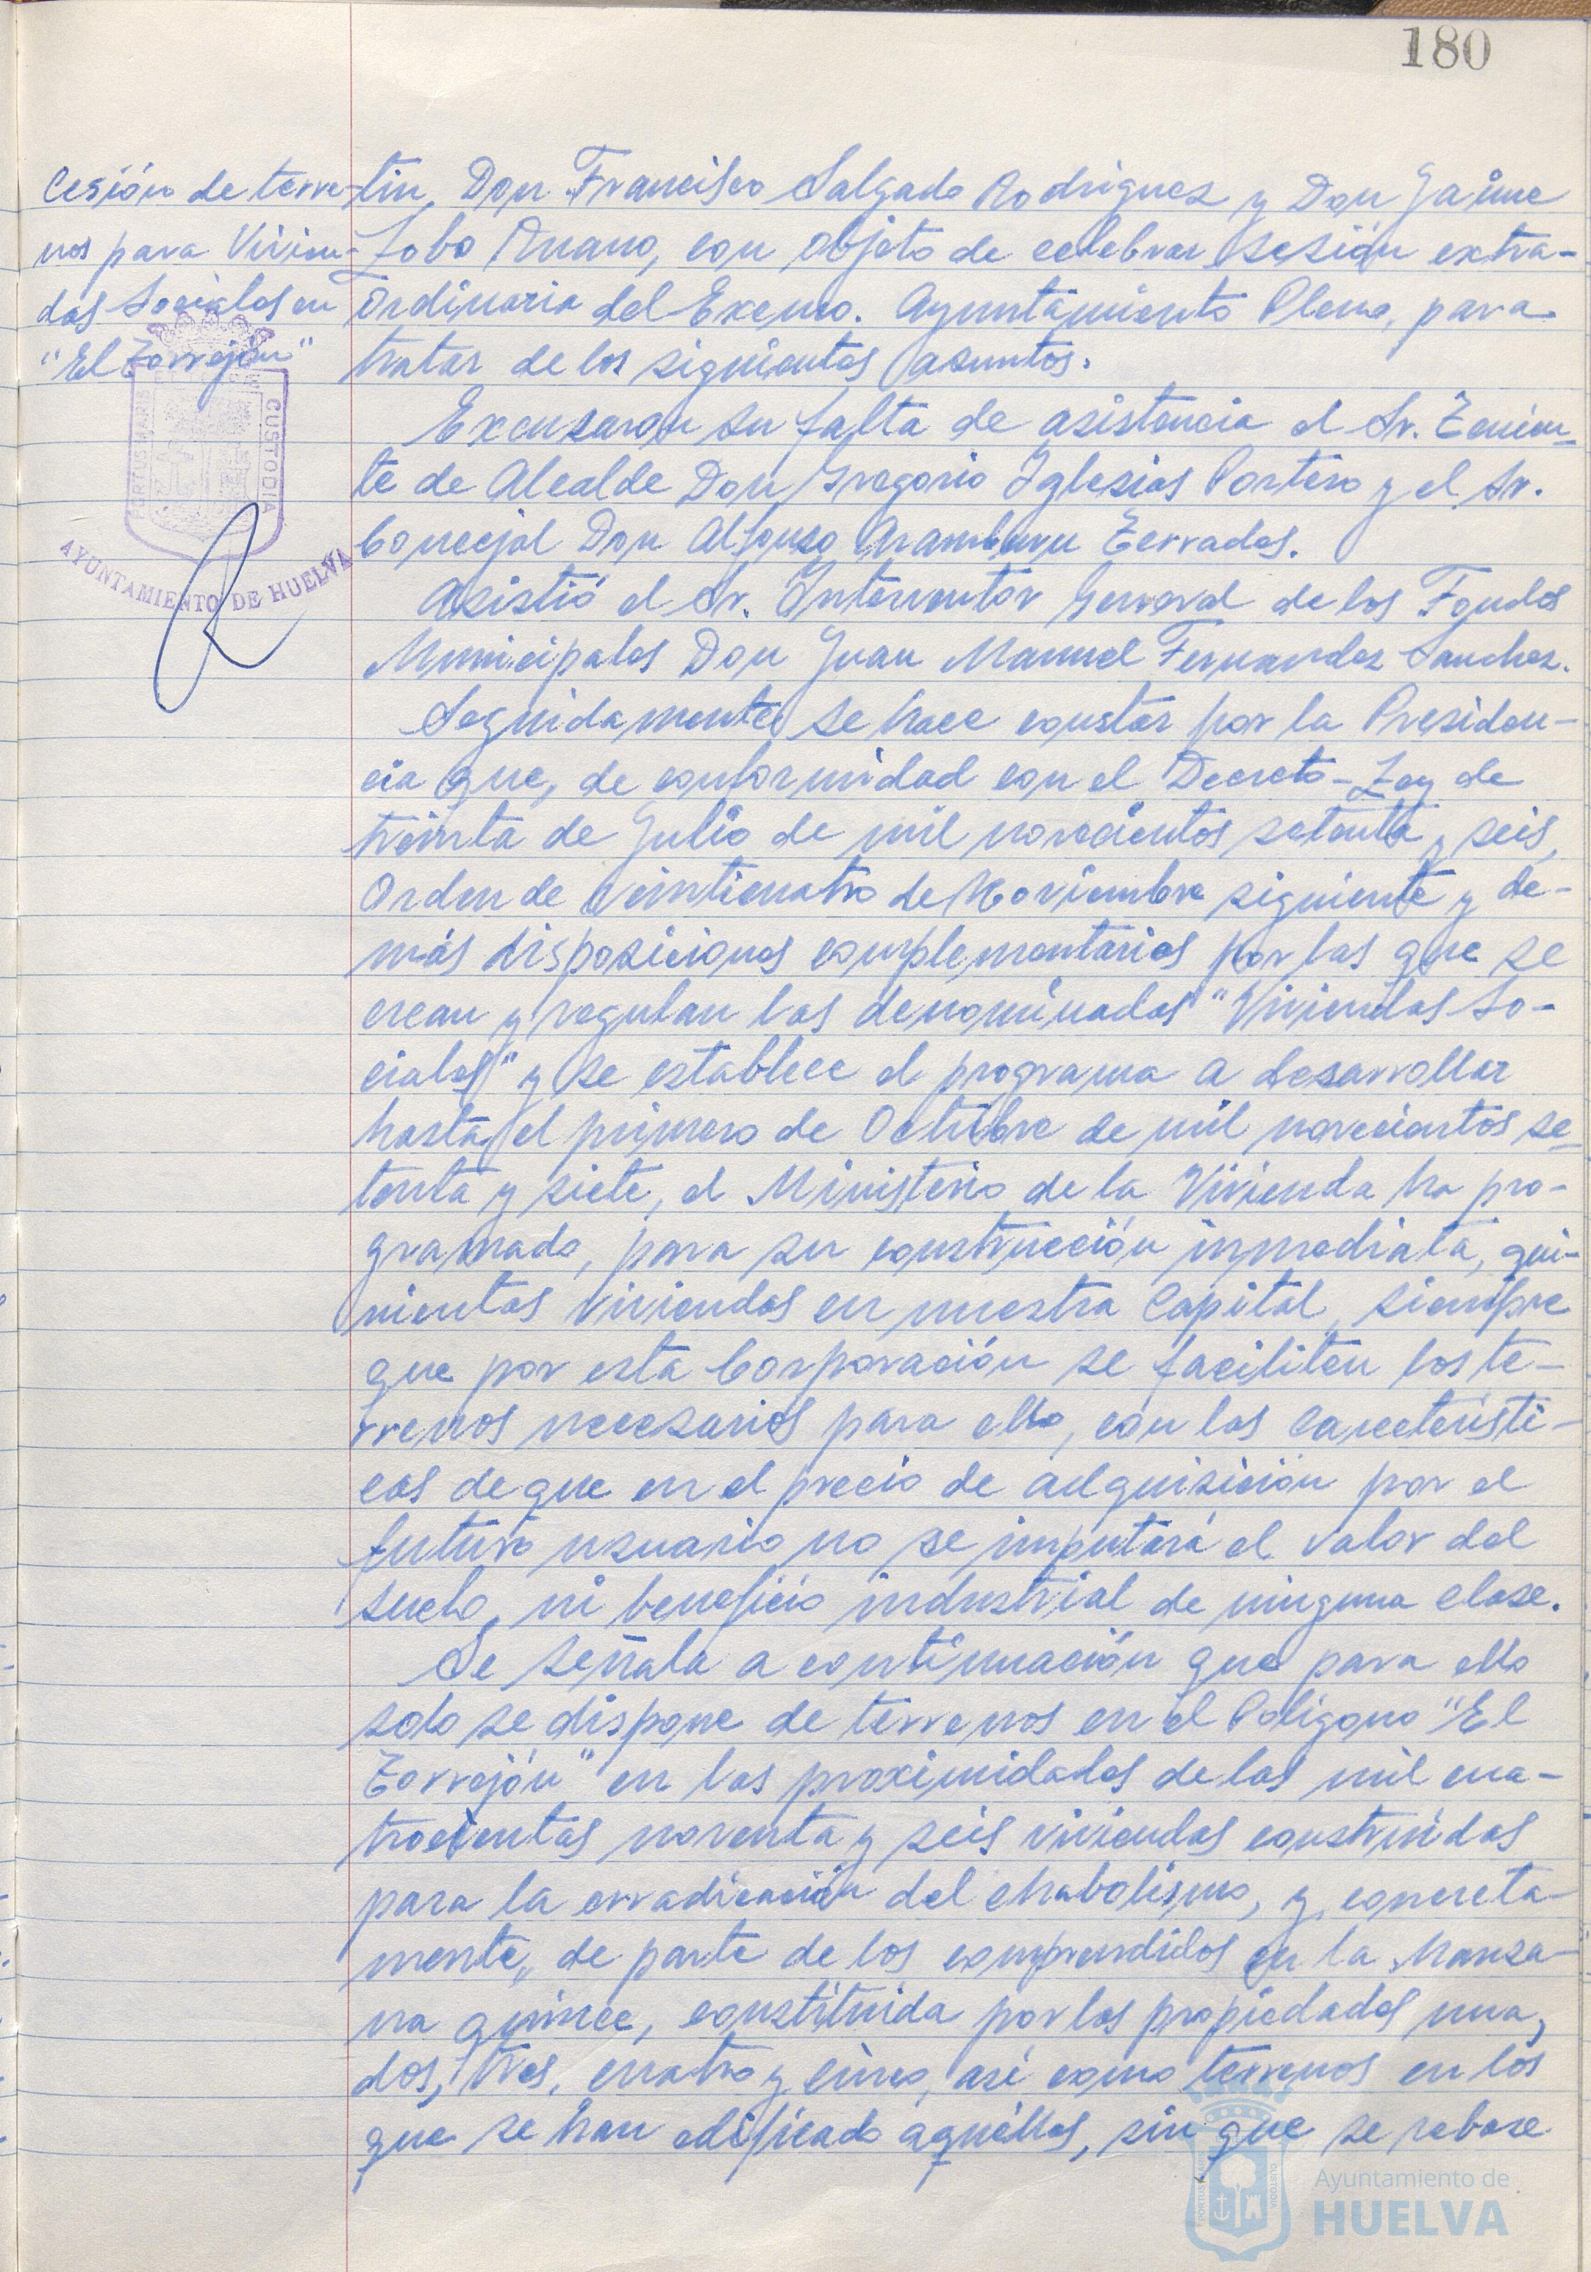 180
Cesión de terre-
nos para Vivien-
das Sociales en
"El Torrejón"
PORTUS MARIS
CUSTODIA
AYUNTAMIENTO DE HUELVA
tín, Don Francisco Salgado Rodríguez y Don Jaime
Lobo Asuano, con objeto de celebrar sesión extra-
ordinaria del Excmo. Ayuntamiento Pleno, para
tratar de los siguientes asuntos.
Excusaron su falta de asistencia el Sr. Tenien-
te de Alcalde Don Gregorio Iglesias Portero y el Sr.
Concejal Don Alfonso Aramburu Terrades.
Asistió el Sr. Interventor General de los Fondos
Municipales Don Juan Manuel Fernandez Sanchez.
Seguidamente se hace constar por la Presiden-
cia que, de conformidad con el Decreto-Ley de
treinta de Julio de mil novecientos setenta y seis,
Orden de veinticuatro de Noviembre siguiente y de-
más disposiciones complementarias por las que se
crean y regulan las denominadas "Viviendas So-
ciales" y se establece el programa a desarrollar
hasta el primero de Octubre de mil novecientos se-
tenta y siete, el Ministerio de la Vivienda ha pro-
gramado, para su construcción inmediata, qui-
nientas viviendas en nuestra Capital, siempre
que por esta Corporación se faciliten los te-
rrenos necesarios para ello, con las caracteristi-
cas de que en el precio de adquisición por el
futuro usuario no se imputará el valor del
suelo, ni beneficio industrial de ninguna clase.
Se señala a continuación que para ello
solo se dispone de terrenos en el Poligono "El
Torrejón" en las proximidades de las mil cua-
trocientas noventa y seis viviendas construidas
para la erradicación del chabolismo, y concreta-
mente, de parte de los comprendidos en la Manza-
na quince, constituida por las propiedades una,
dos, tres, cuatro y cinco, asi como terrenos en los
que se han edificado aquéllas, sin que se rebase
Ayuntamiento de
HUELVA